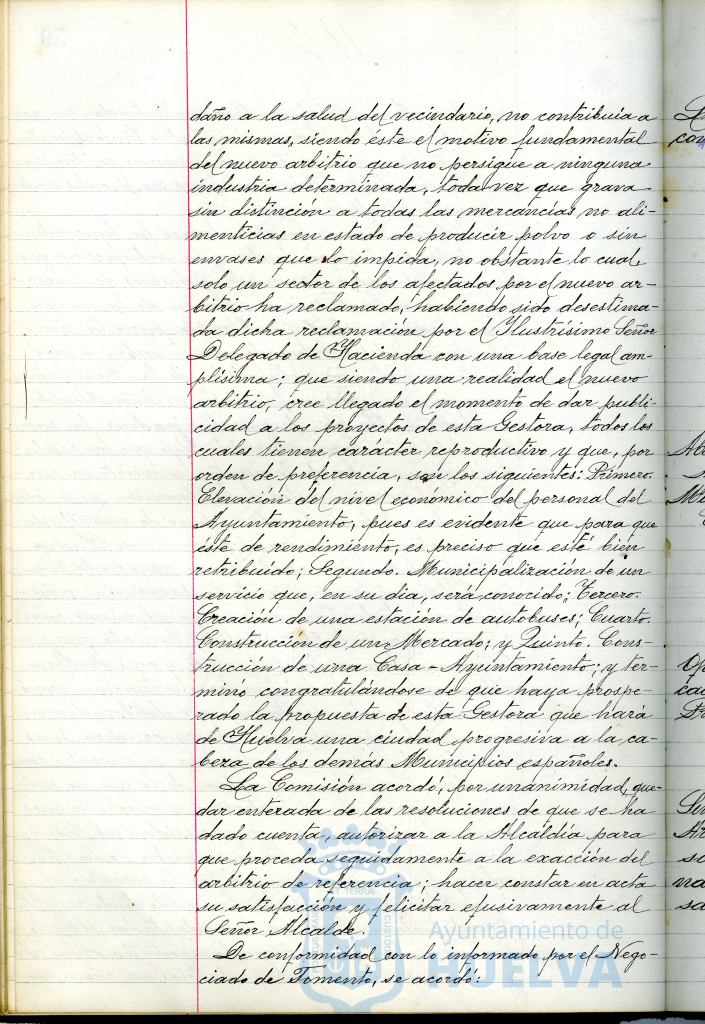 daño a la salud del vecindario, no contribuía a
las mismas, siendo éste el motivo fundamental
del nuevo arbitrio que no persigue a ninguna
industria determinada, toda vez que grava
sin distinción a todas las mercancías no ali-
menticias en estado de producir polvo o sin
envases que lo impida, no obstante lo cual
solo un sector de los afectados por el nuevo ar-
bitrio ha reclamado, habiendo sido desestima-
da dicha reclamación por el Ilustrísimo Señor
Delegado de Hacienda con una base legal am-
plísima; que siendo una realidad el nuevo
arbitrio, cree llegado el momento de dar publi-
cidad a los proyectos de esta Gestora, todos los
cuales tienen carácter reproductivo y que, por
orden de preferencia, son los siguientes: Primero.
Elevación del nivel económico del personal del
Ayuntamiento, pues es evidente que para que
éste de rendimiento, es preciso que esté bien
retribuído; Segundo. Municipalización de un
servicio que, en su día, será conocido; Tercero.
Creación de una estación de autobuses; Cuarto.
Construcción de un Mercado; y Quinto. Cons-
trucción de una Casa-Ayuntamiento; y ter-
minó congratulándose de que haya prospe-
rado la propuesta de esta Gestora que hará
de Huelva una ciudad progresiva a la ca-
beza de los demás Municipios españoles.
La Comisión acordó, por unanimidad, que-
dar enterada de las resoluciones de que se ha
dado cuenta, autorizar a la Alcaldía para
que proceda seguidamente a la exacción del
arbitrio de referencia; hacer constar en acta
su satisfacción y felicitar efusivamente al
Señor Alcalde.
De conformidad con lo informado por el Nego-
ciado de Fomento, se acordó:
Ayuntamiento de
HUELVA